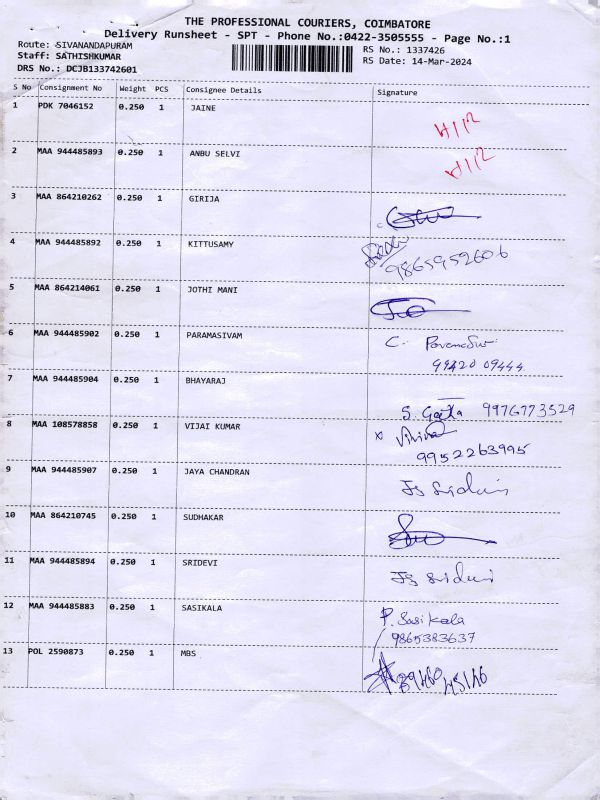 THE PROFESSIONAL COURIERS, COIMBATORE
Delivery Runsheet - SPT - Phone No.:0422-3505555 - Page No.:1
Route: SIVANANDAPURAM RS No.: 1337426
Staff: SATHISHKUMAR RS Date: 14-Mar-2024
DRS No.: DCJB133742601
S No Consignment No Weight PCS Consignee Details Signature
1 PDK 7046152 0.250 1 JAINE
2 MAA 944485893 0.250 1 ANBU SELVI
3 MAA 864210262 0.250 1 GIRIJA
4 MAA 944485892 0.250 1 KITTUSAMY
9865952606
5 MAA 864214061 0.250 1 JOTHI MANI
6 MAA 944485902 0.250 1 PARAMASIVAM C.
99420 09444
7 MAA 944485904 0.250 1 BHAYARAJ
S. Geetha 9976773529
8 MAA 108578858 0.250 1 VIJAI KUMAR x
9952263995
9 MAA 944485907 0.250 1 JAYA CHANDRAN
10 MAA 864210745 0.250 1 SUDHAKAR
11 MAA 944485894 0.250 1 SRIDEVI
12 MAA 944485883 0.250 1 SASIKALA P. Sasikala
9865383637
13 POL 2590873 0.250 1 MBS